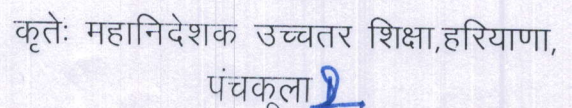 कृतेः महानिदेशक उच्चतर शिक्षा,हरियाणा,
पंचकूला